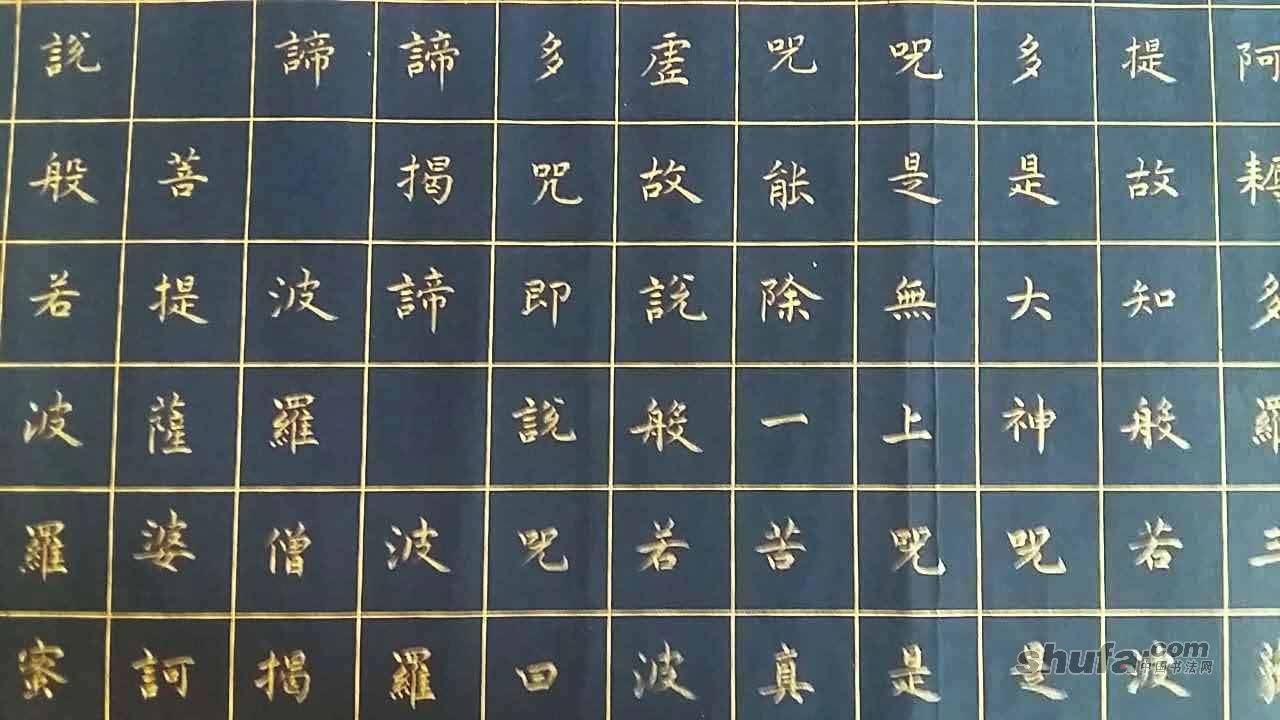 阿耨多羅三藐
提故知般若波
多是大神咒是
咒是無上咒是
咒能除一苦真
虛故說般若波
多咒即說咒曰
諦揭諦 波羅
諦 波羅僧揭
菩提薩婆訶
說般若波羅蜜
shufa.com
中国书法网